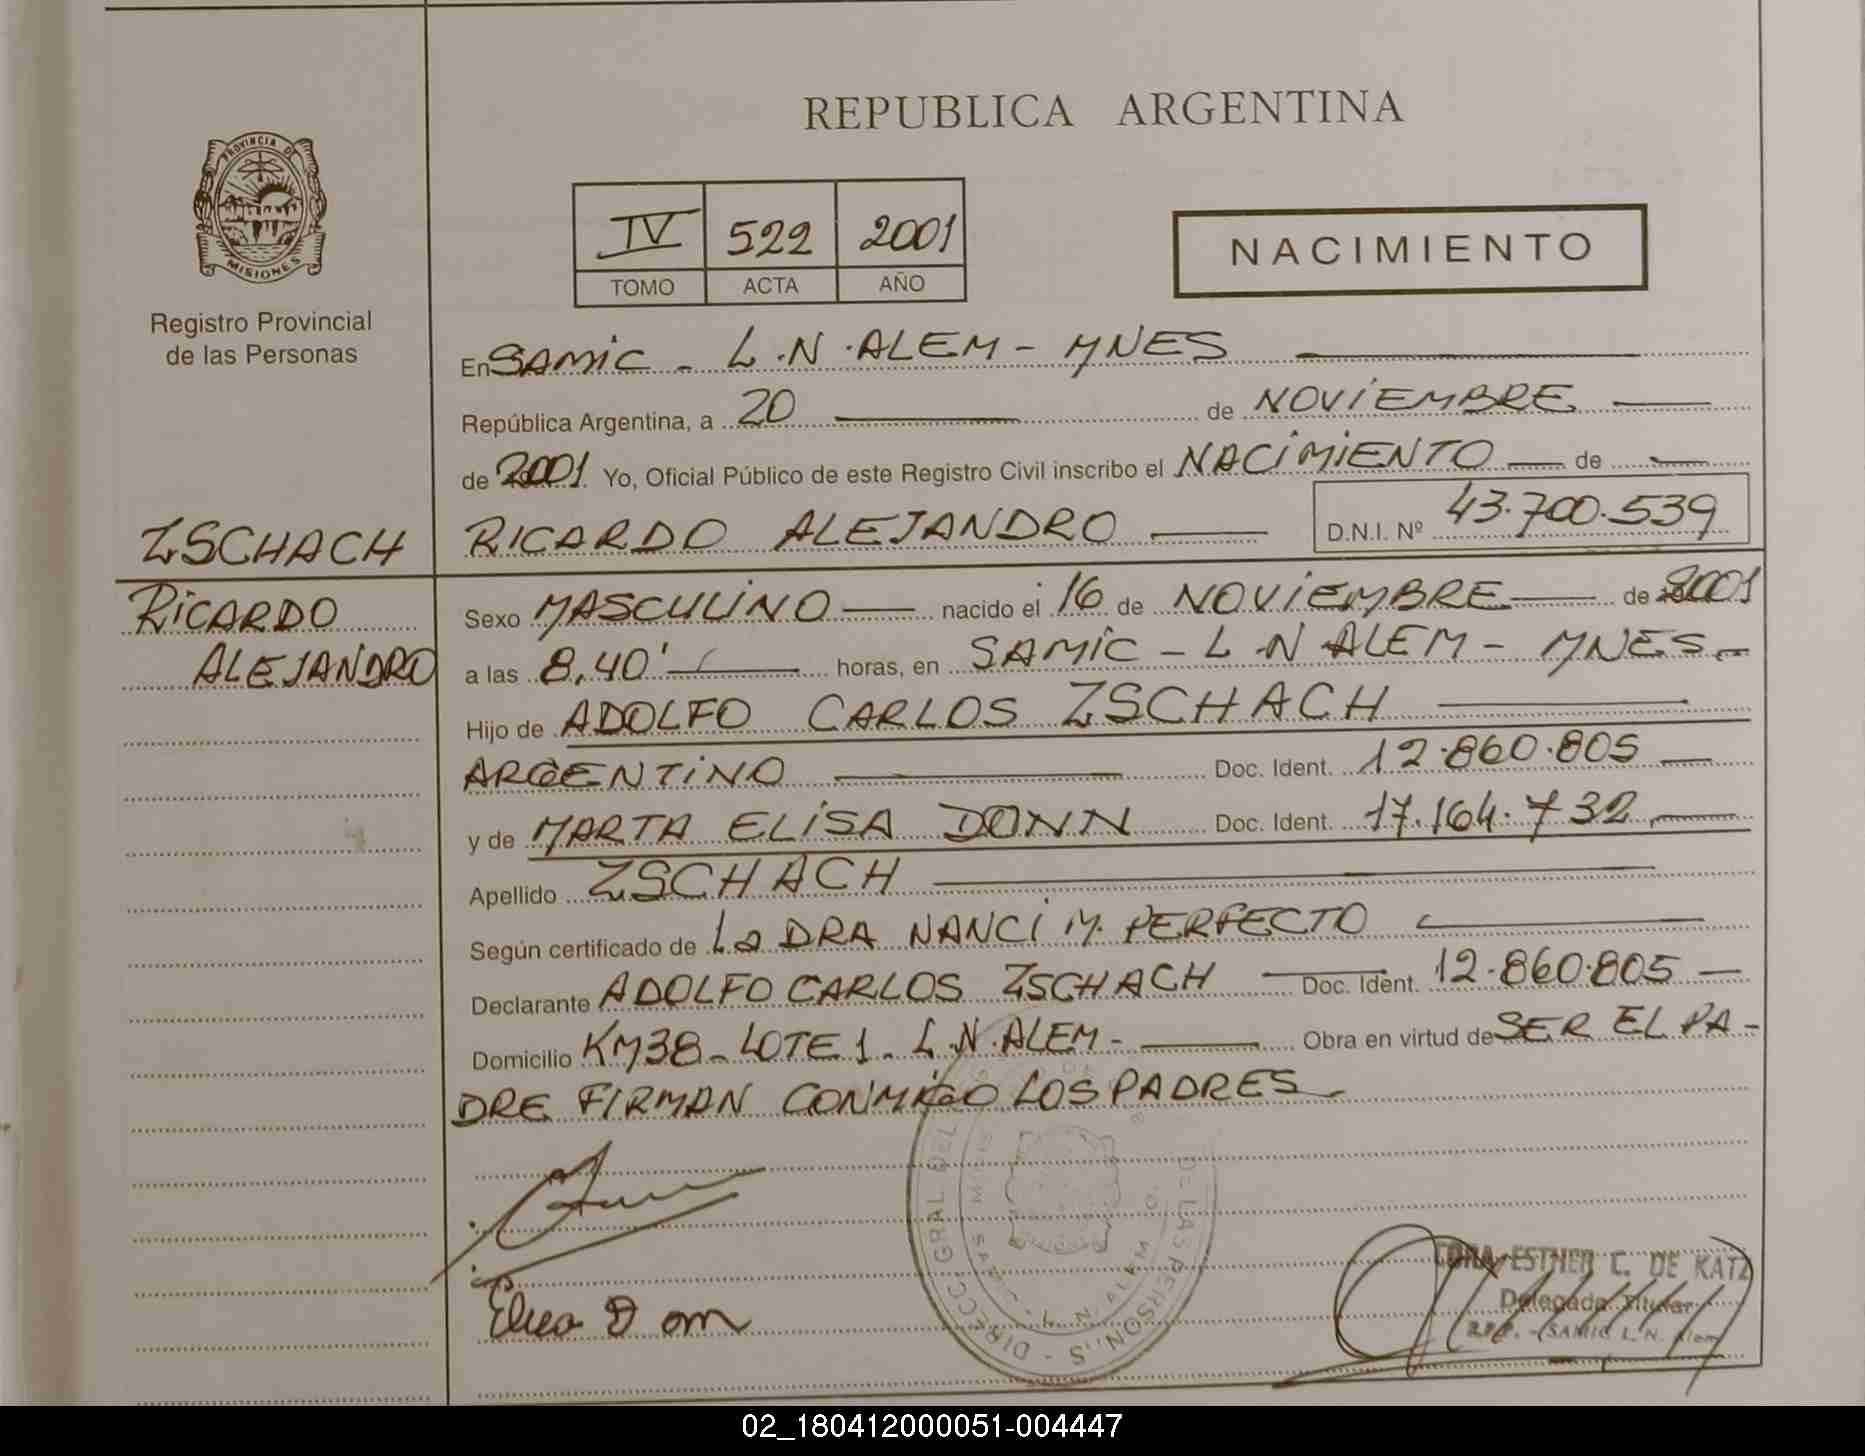 REPUBLICA ARGENTINA
PROVINCIA DE
MISIONES
Registro Provincial
de las Personas
IV 522 2001
TOMO ACTA AÑO
NACIMIENTO
En SAMIC - L.N. ALEM - MNES
República Argentina, a 20 de NOVIEMBRE
de 2001 Yo, Oficial Público de este Registro Civil inscribo el NACIMIENTO de
ZSCHACH RICARDO ALEJANDRO D.N.I. Nº 43.700.539
RICARDO
ALEJANDRO
Sexo MASCULINO nacido el 16 de NOVIEMBRE de 2001
a las 8,40' horas, en SAMIC - L.N ALEM - MNES.
Hijo de ADOLFO CARLOS ZSCHACH
ARGENTINO Doc. Ident. 12.860.805
y de MARTA ELISA DONN Doc. Ident. 17.164.732
Apellido ZSCHACH
Según certificado de La DRA NANCI M. PERFECTO
Declarante ADOLFO CARLOS ZSCHACH Doc. Ident. 12.860.805
Domicilio KM38 - LOTE 1 - L.N. ALEM - Obra en virtud de SER EL PA-
DRE FIRMAN CONMIGO LOS PADRES
DIRECC. GRAL. DEL DE LAS PERSON.
SAMIC - L. N. ALEM
ESTHER C. DE KATZ
Delegada Titular
SAMIC L. N. Alem
02_180412000051-004447